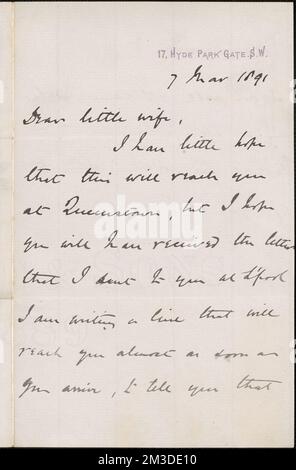 17, HYDE PARK GATE. S.W.
7 Mar 1891
Dear little wife,
I have little hope
that this will reach you
at Queenstown, but I hope
you will have received the letter
that I sent to you at L'pool
I am writing a line that will
reach you almost as soon as
you arrive, to tell you that
alamy
Image ID: 2M3DE10
www.alamy.com